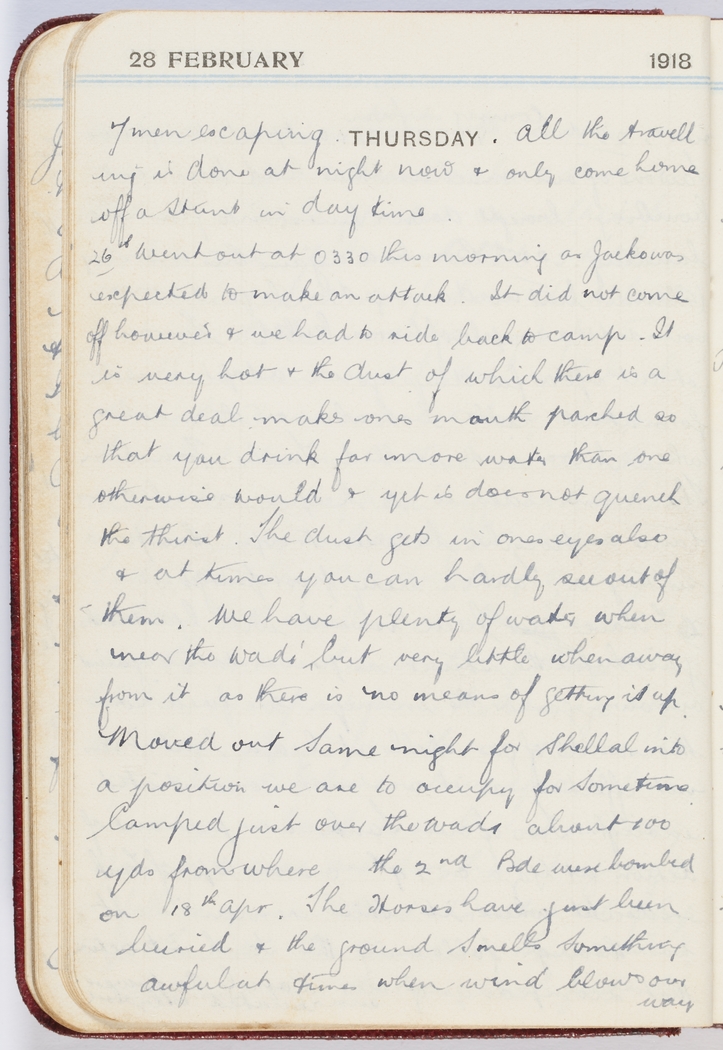 28 FEBRUARY 1918
7 men escaping. THURSDAY. All the travell
ing is done at night now & only come home
off a stunt in day time.
26th Went out at 0330 this morning as Jacko was
expected to make an attack. It did not come
off however & we had to ride back to camp. It
is very hot & the dust of which there is a
great deal makes ones mouth parched so
that you drink far more water than one
otherwise would & yet is does not quench
the thirst. The dust gets in ones eyes also
& at times you can hardly see out of
them. We have plenty of water when
near the Wadi but very little when away
from it as there is no means of getting it up.
Moved out same night for Shellal into
a position we are to occupy for sometime.
Camped just over the wadi about 100
yds from where the 2nd Bde were bombed
on 18th Apr. The Horses have just been
buried & the ground smells something
awful at times when wind blows our
way